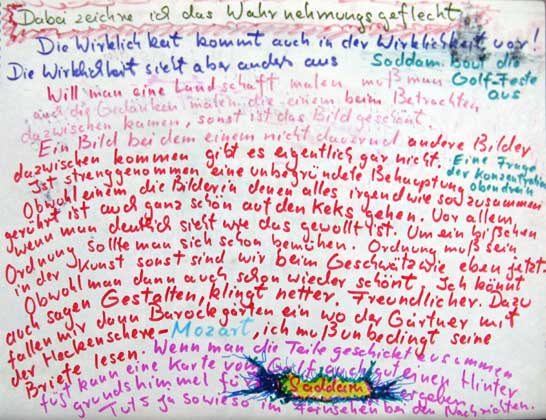 Dabei zeichne ich das Wahrnehmungsgeflecht
Die Wirklichkeit kommt auch in der Wirklichkeit vor!
Die Wirklichkeit sieht aber anders aus
Saddam baut die
Golf-Feste
aus
Will man eine Landschaft malen, muß man
auch die Gedanken malen die einem beim Betrachten
dazwischen kamen, sonst ist das Bild geschönt.
Ein Bild bei dem einem nicht dauernd andere Bilder
dazwischen kommen gibt es eigentlich gar nicht.
Eine Frage
der Konzentration
obendrein
Ist strenggenommen eine unbegründete Behauptung
Obwohl einem die Bilder in denen alles irgendwie so zusammen
gerührt ist auch ganz schön auf den Keks gehen. Vor allem,
wenn man deutlich sieht wie das gewollt ist. Um ein bißchen
Ordnung sollte man sich schon bemühen. Ordnung muß sein
in der Kunst sonst sind wir beim Geschwätz wie eben jetzt.
Obwohl man dann auch schon wieder schönt. Ich könnt
auch sagen Gestalten, klingt netter. Freundlicher. Dazu
fallen mir dann Barockgärten ein wo der Gärtner mit
der Heckenschere - Mozart, ich muß unbedingt seine
Briefe lesen. Wenn man die Teile geschickt zusammen
fügt kann eine Karte vom auch guternen Hinter
grundshimmel für Saddam ergeben.
Tut's ja sowieso im Fernsehen bei den Nachrichten.